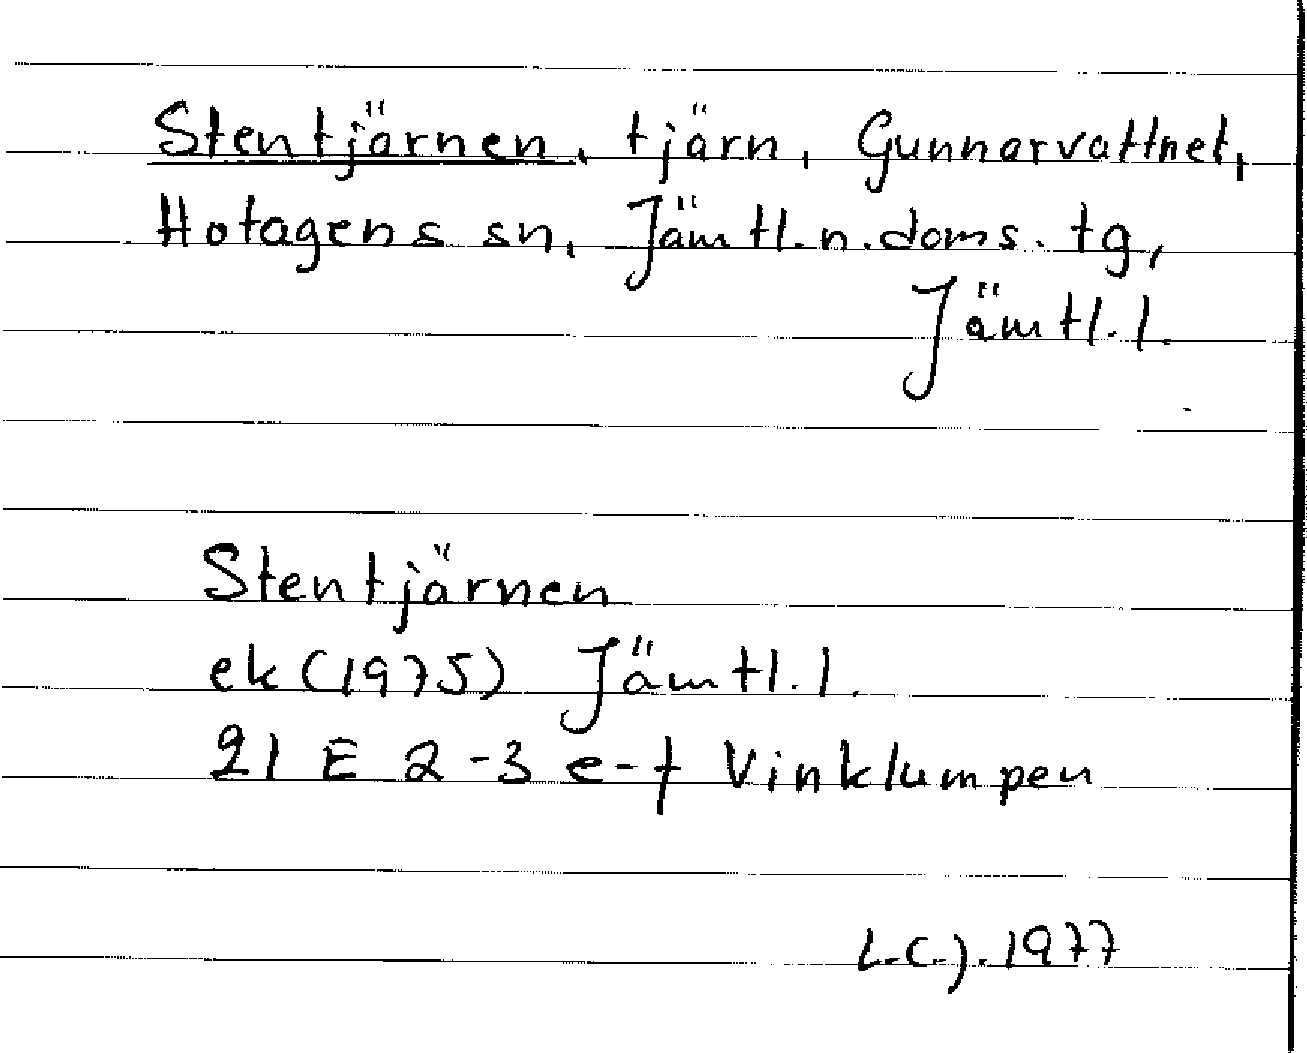 Stentjärnen, tjärn, Gunnarvattnet,
Hotagens sn, Jämtl. n. doms. tg,
Jämtl. l.
Stentjärnen
ek (1975) Jämtl. l.
21 E 2-3 e-f Vinklumpen
L.C.J. 1977